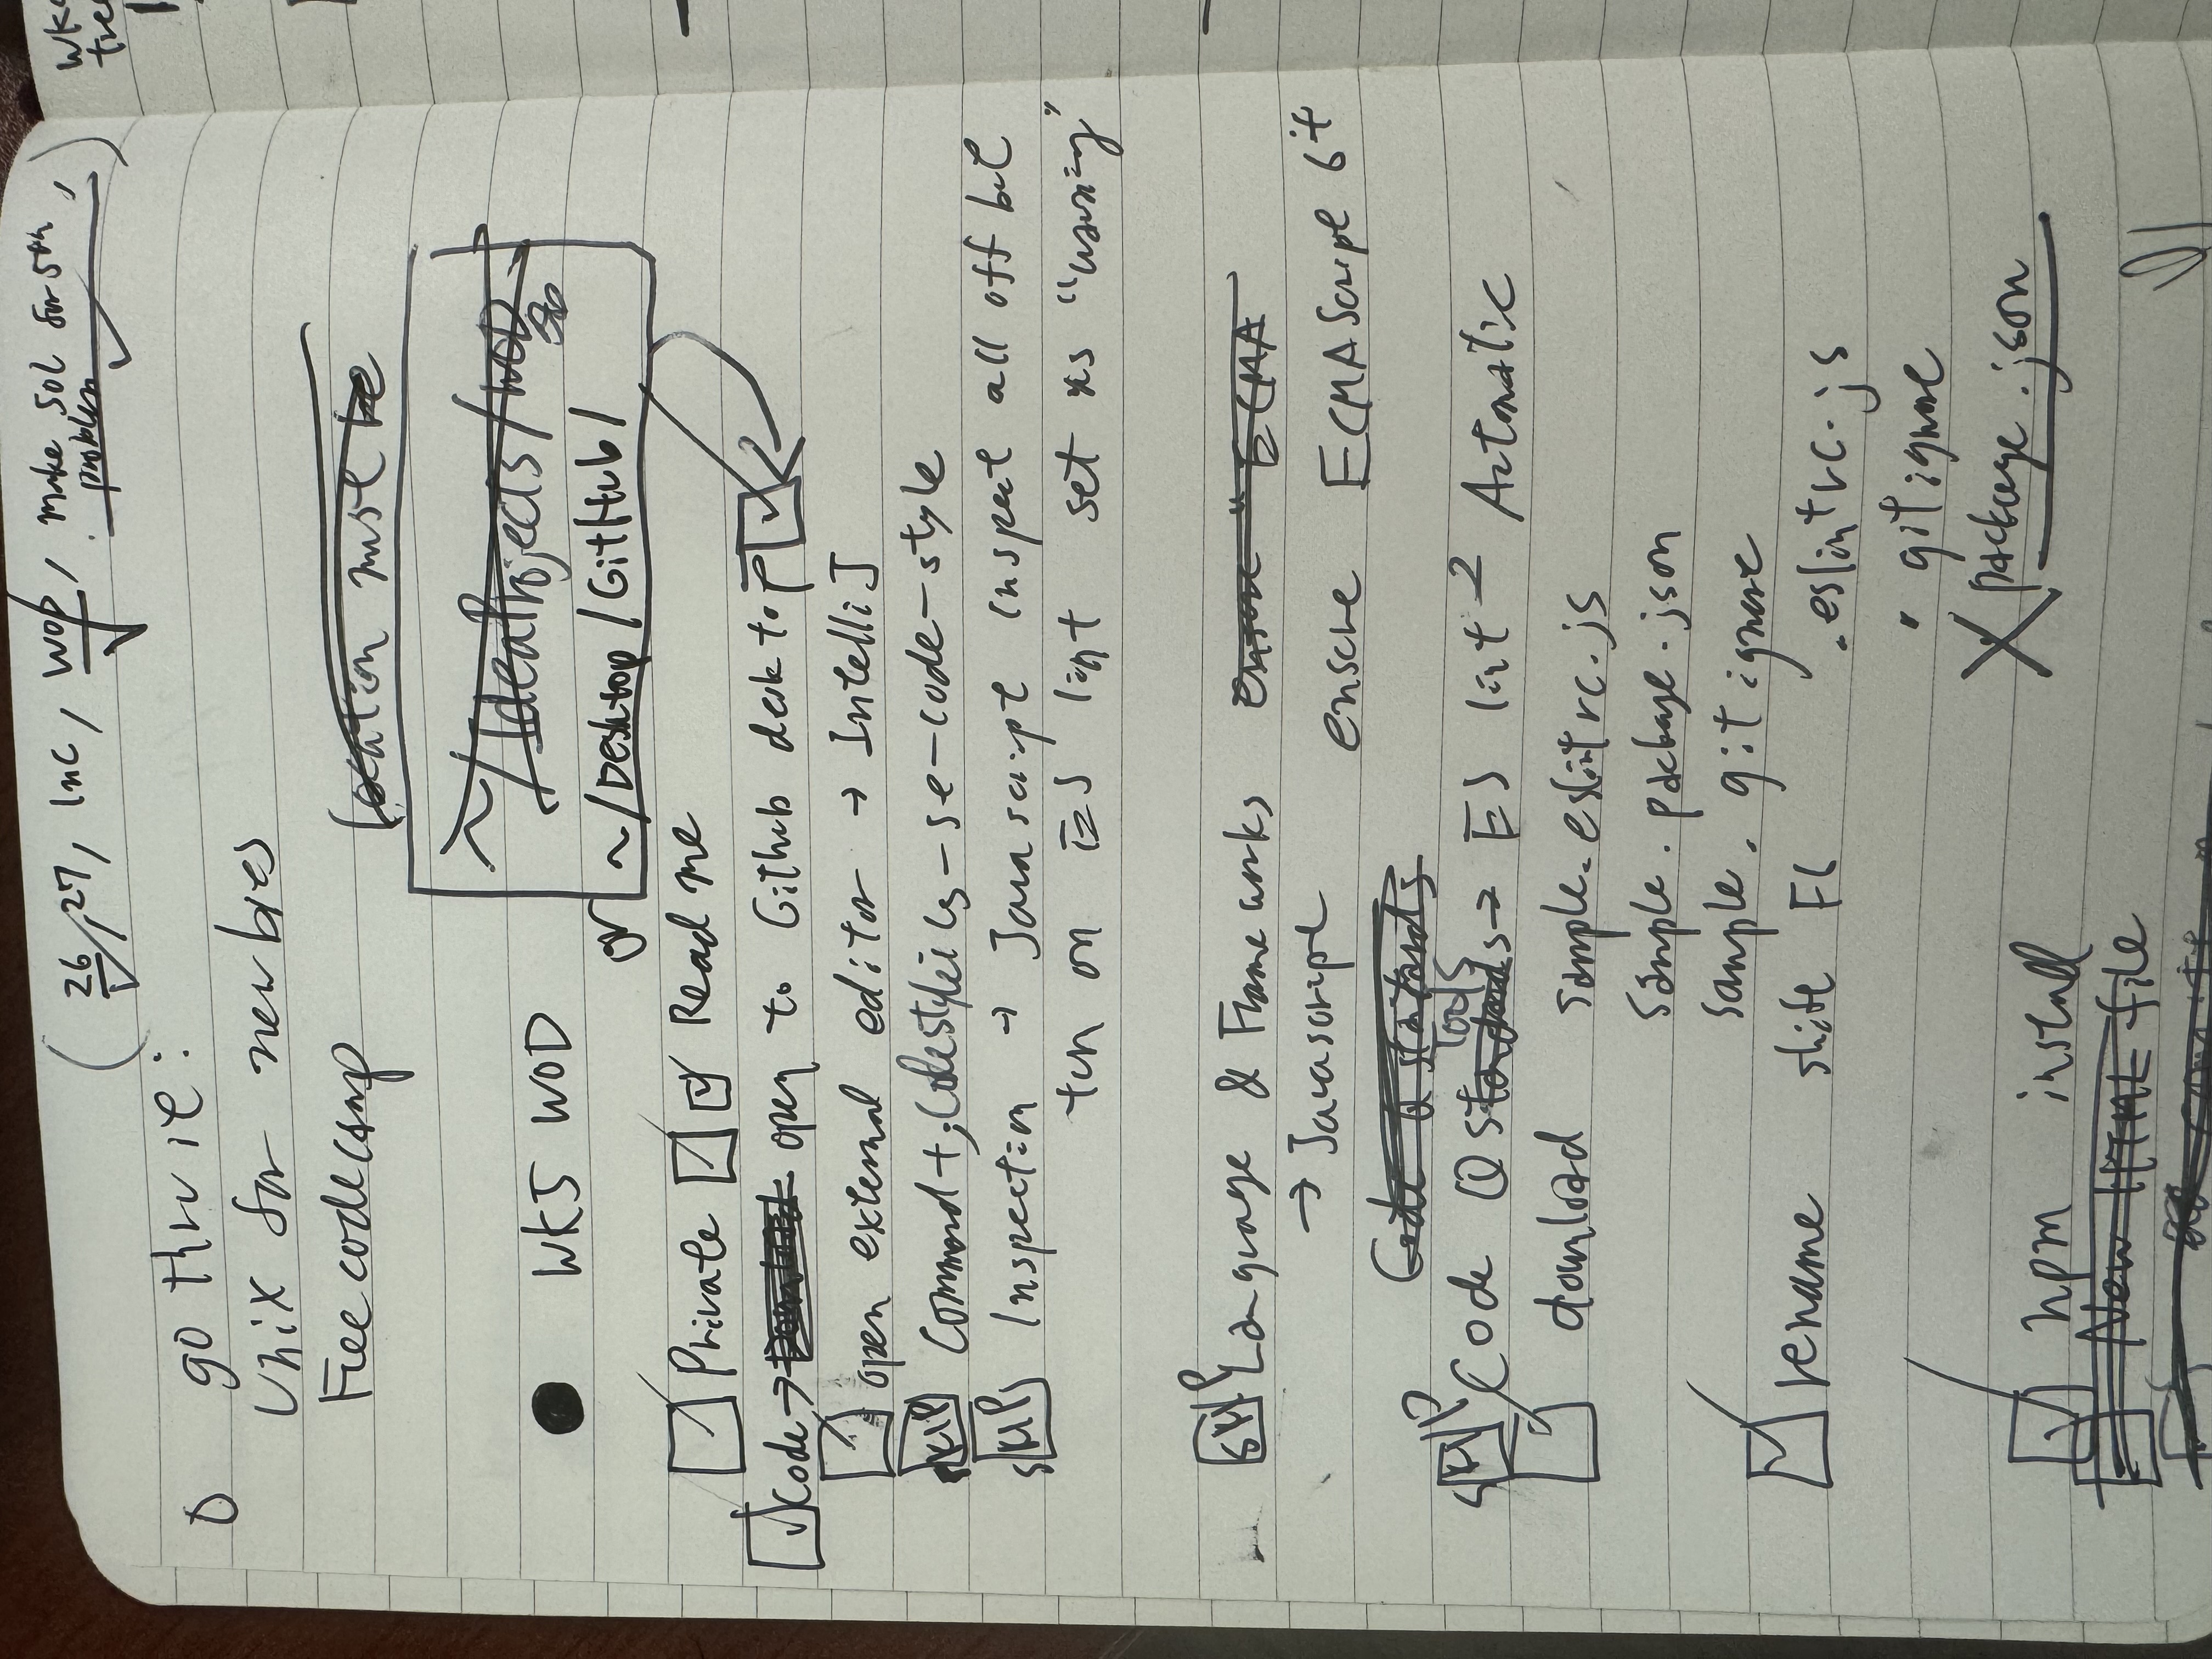 (26, 27, Inc, WOD, make sol for 5th,
problem)
go thru it:
Unix for newbies
Freecodecamp
Location must be
~/IdeaProjects/WOD
WK5 WOD
or ~/Desktop/GitHub/
Private Read me
Code → Download open to Github desktop
open external editor → IntelliJ
SKIP Command + ; Codestyle cs-se-code-style
SKIP Inspection → Javascript inspect all off but
turn on ES lint set as "warning"
SKIP Language & Frameworks ensure "ECMA
→ Javascript ensure ECMAScript 6+
Code Q standards
Tools
SKIP Code Q standards → ES lint → Automatic
download sample.eslintrc.js
sample.package.json
sample.gitignore
rename shift F6 .eslintrc.js
.gitignore
X package.json
npm install
New HTML file
WK
tree